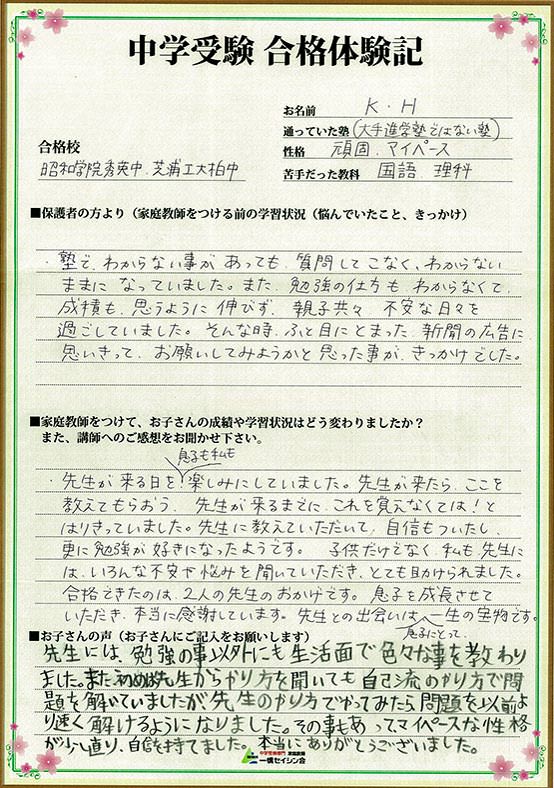 中学受験 合格体験記
お名前 K・H
通っていた塾(大手進学塾ではない塾)
合格校
性格 頑固、マイペース
昭和学院秀英中、芝浦工大柏中
苦手だった教科 国語、理科
■保護者の方より(家庭教師をつける前の学習状況(悩んでいたこと、きっかけ)
・塾で、わからない事があっても、質問してこなく、わからない
ままになっていました。また、勉強の仕方もわからなくて、
成積も、思うように伸びず、親子共々、不安な日々を
過ごしていました。そんな時、ふと目にとまった、新聞の広告に
思いきって、お願いしてみようかと思った事が、きっかけでした。
■家庭教師をつけて、お子さんの成績や学習状況はどう変わりましたか?
また、講師へのご感想をお聞かせ下さい。
息子も私も
・先生が来る日を、楽しみにしていました。先生が来たら、ここを
教えてもらおう、先生が来るまでに、これを覚えなくては!と
はりきっていました。先生に教えていただいて、自信もついたし、
更に勉強が好きになったようです。子供だけでなく、私も、先生に
は、いろんな不安や悩みを聞いていただき、とても助けられました。
合格できたのは、2人の先生のおかげです。息子を成長させて
いただき、本当に感謝しています。先生との出会いは、一生の宝物です。
息子にとって、
■お子さんの声(お子さんにご記入をお願いします)
先生には、勉強の事以外にも生活面で色々な事を教わり
ました。また、初めは先生からやり方を聞いても自己流のやり方で問
題を解いていましたが、先生のやり方でやってみたら問題を以前よ
り速く解けるようになりました。その事もあってマイペースな性格
が少し直り、自信を持てました。本当にありがとうございました。
中学受験専門 家庭教師
一橋セイシン会